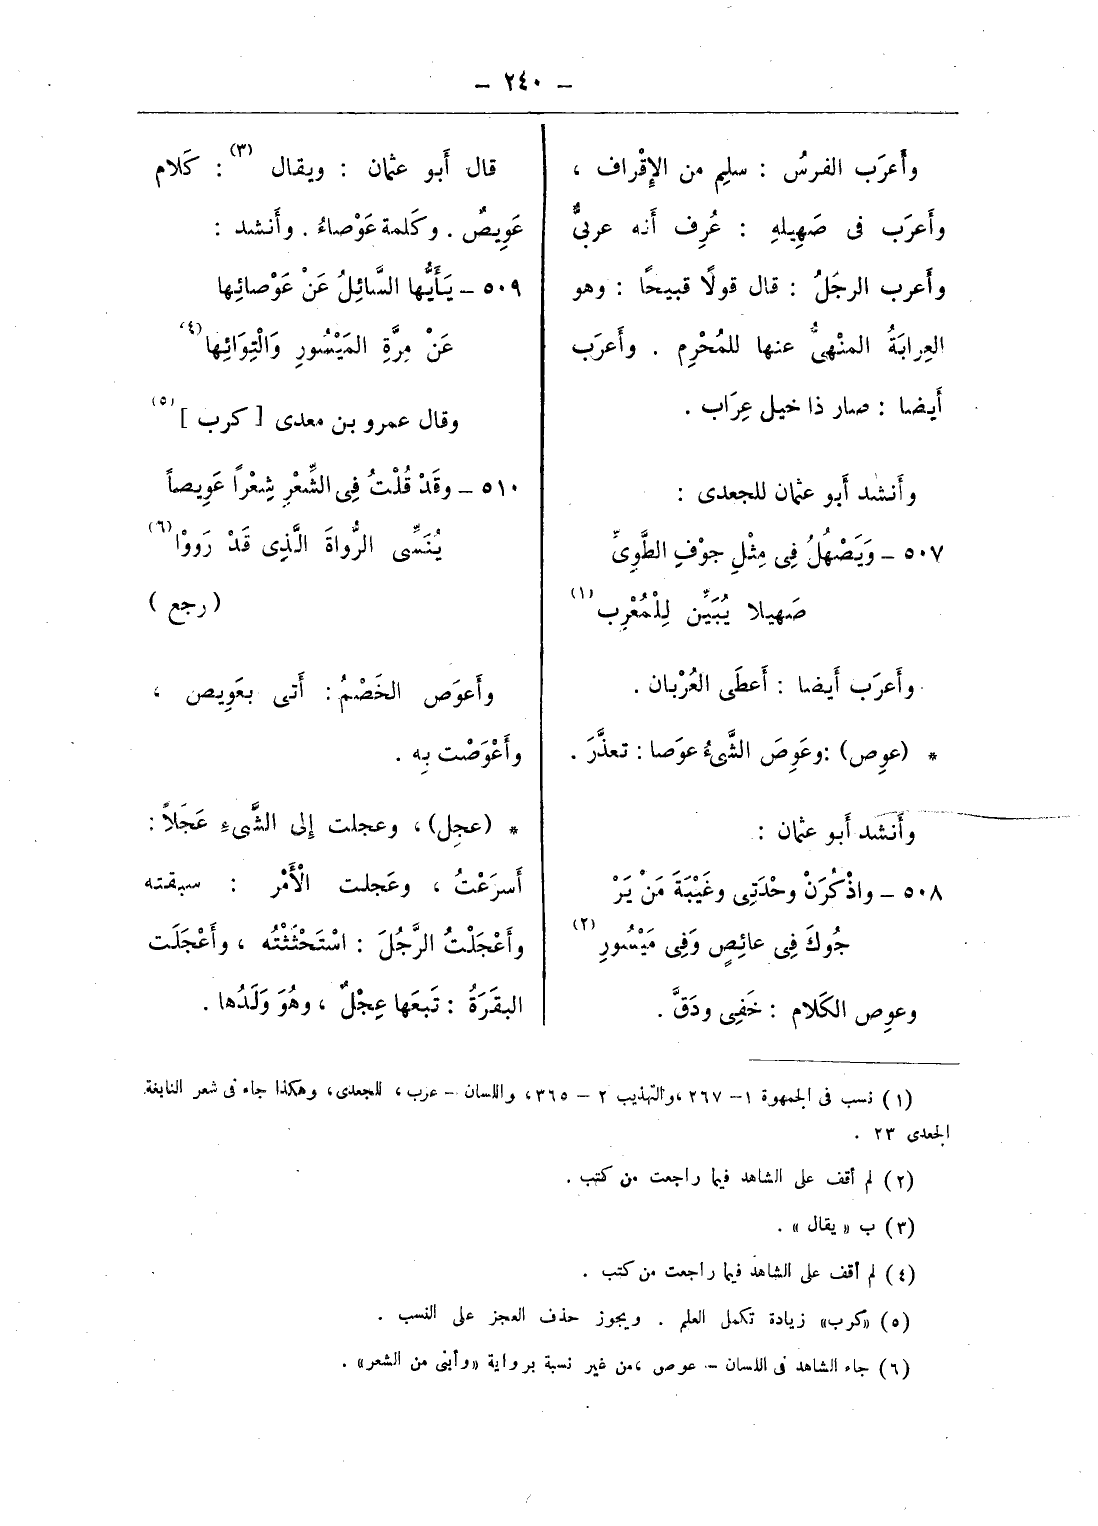 – ٢٤٠ –
وأَعرَب الفرسُ : سليم من الإِقْراف ،
وأَعرَب فى صَهِيلهِ : عُرِف أَنه عربىٌّ
وأَعرب الرجَلُ : قال قولًا قبيحًا : وهو
العِرابَةُ المنْهىُّ عنها للمُحْرِم . وأَعرَب
أَيضا : صار ذا خيل عِرَاب .
وأَنشد أَبو عثمان للجعدى :
٥٠٧ – وَيَصْهُلُ فِى مِثْلِ جوْفِ الطَّوِىِّ
صَهيلا يُبَيِّن لِلْمُعْرِبِ (١)
وأَعرَب أَيضا : أَعطَى العُرْبان .
* (عوِص) : وعَوِصَ الشَّىءُ عوَصا : تعذَّرَ .
وأَنشد أَبو عثمان :
٥٠٨ – واذْكُرَنْ وحْدَتِى وغَيْبَةَ مَنْ يَرْ
جُوكَ فِى عائِصٍ وَفِى مَيْسُورِ (٢)
وعوِص الكَلام : خَفِى ودَقَّ .
قال أَبو عثمان : ويقال (٣) : كَلام
عَوِيصٌ . وكَلمة عَوْصاءُ . وأَنشد :
٥٠٩ – يَـأَيُّها السَّائِلُ عَنْ عَوْصائِها
عَنْ مِرَّةِ المَيْسُورِ وَالْتِوَائِها (٤)
وقال عمرو بن معدى [ كرب ] (٥)
٥١٠ – وقَدْ قُلْتُ فِى الشِّعْرِ شِعْرًا عَوِيصاً
يُنَسِّى الرُّواةَ الَّذِى قَدْ رَووْا (٦)
( رجع )
وأَعوَص الخَصْمُ : أَتى بعَويص ،
وأَعْوَصْت بِه .
* (عجِل) ، وعجلت إِلى الشَّىءِ عَجَلاً :
أَسرَعْتُ ، وعَجلت الْأَمْر : سبقته
وأَعْجَلْتُ الرَّجُلَ : اسْتَحْثَثْتُه ، وأَعْجَلَت
البقَرَةُ : تَبعَها عِجْلٌ ، وهُوَ وَلَدُها .
(١) نسب فى الجمهرة ١ – ٢٦٧ ، والتهذيب ٢ – ٣٦٥ ، واللسان – عرب ، للجعدى ، وهكذا جاء فى شعر النابغة
الجعدى ٢٣ .
(٢) لم أقف على الشاهد فيما راجعت من كتب .
(٣) ب « يقال » .
(٤) لم أقف على الشاهد فيما راجعت من كتب .
(٥) «كرب» زيادة تكمل العلم . ويجوز حذف العجز على النسب .
(٦) جاء الشاهد فى اللسان – عوص ، من غير نسبة برواية «وأبنى من الشعر» .